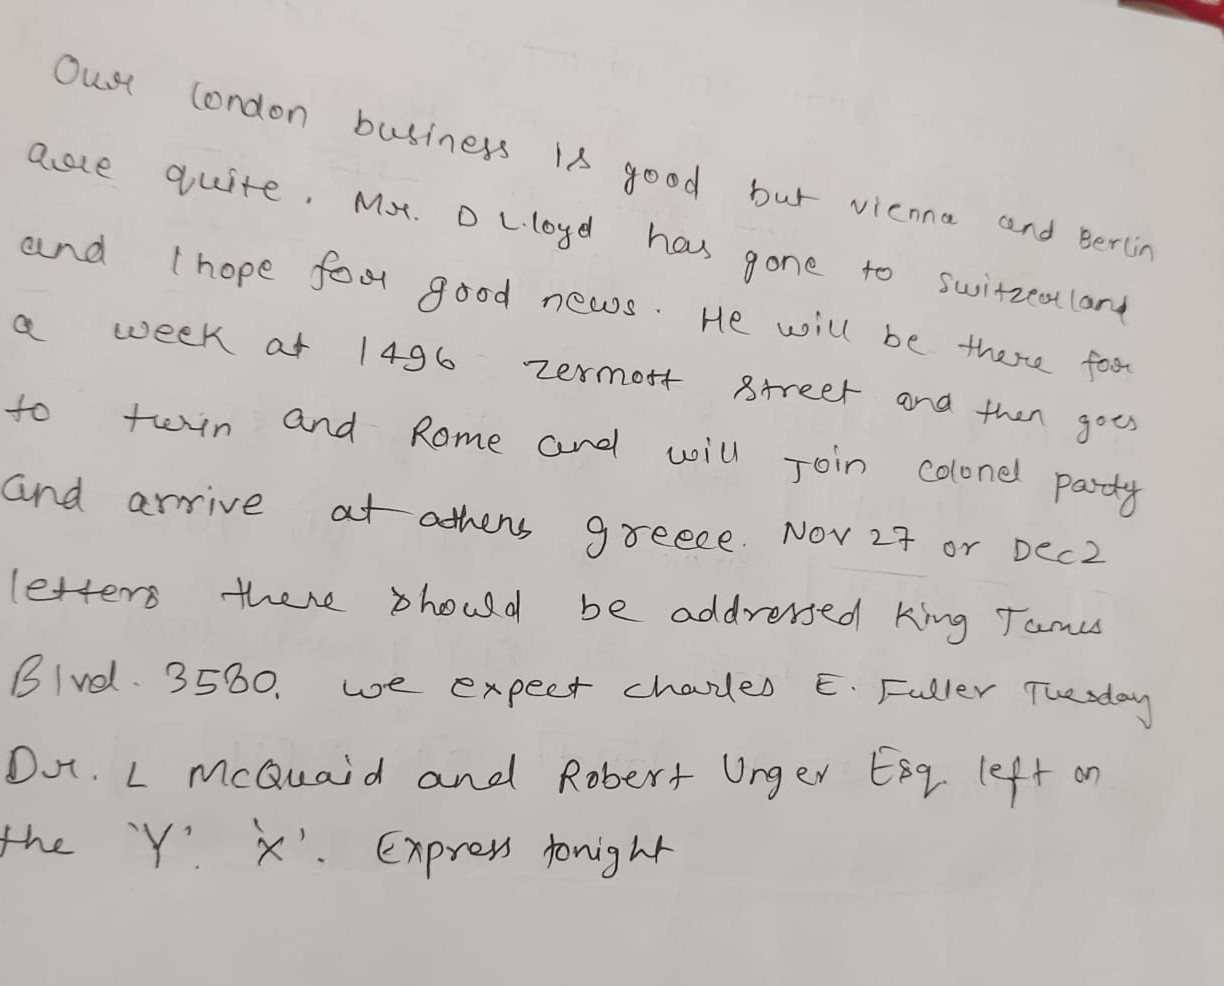 Our london business is good but vienna and Berlin
are quite. Mr. D L.loyd has gone to switzerland
and I hope for good news. He will be there for
a week at 1496 zermott street and then goes
to twin and Rome and will Join colonel party
and arrive at athens greece. Nov 27 or Dec 2
letters there should be addressed King James
Blvd. 3580. we expect charles E. Fuller Tuesday
Dr. L McQuaid and Robert Unger Esq. left on
the 'Y'. 'X'. Express tonight